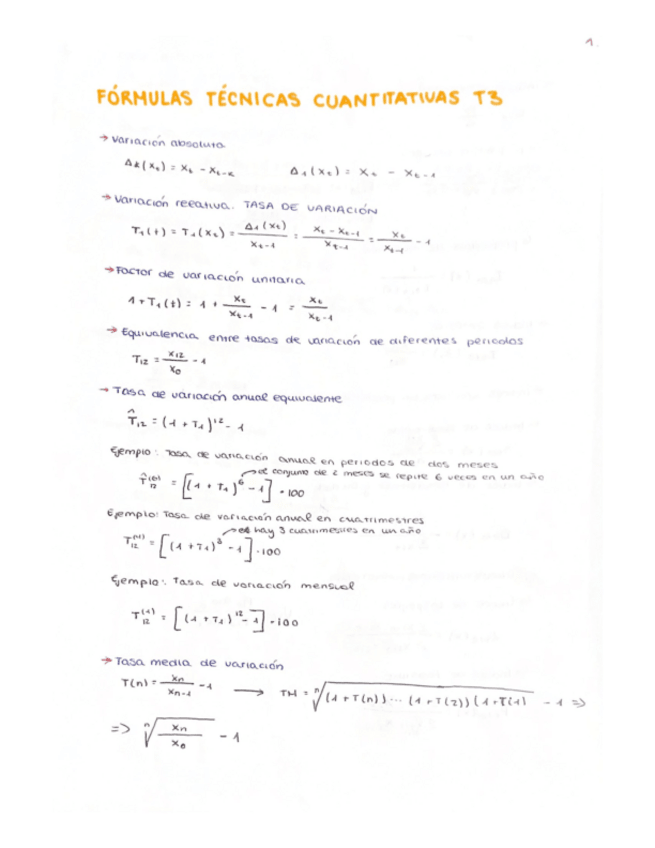 1.
FÓRMULAS TÉCNICAS CUANTITATIVAS T3
→ Variación absoluta
Δk(Xt) = Xt - Xt-k    Δ1(Xt) = Xt - Xt-1
→ Variación relativa. TASA DE VARIACIÓN
T1(t) = T1(Xt) = Δ1(Xt)/Xt-1 = Xt - Xt-1/Xt-1 = Xt/Xt-1 - 1
→ Factor de variación unitaria
1 + T1(t) = 1 + Xt/Xt-1 - 1 = Xt/Xt-1
→ Equivalencia entre tasas de variación de diferentes periodos
T12 = X12/X0 - 1
→ Tasa de variación anual equivalente
T̂12 = (1 + T1)^12 - 1
Ejemplo: Tasa de variación anual en periodos de dos meses
→ el conjunto de 2 meses se repite 6 veces en un año
T̂12^(6) = [(1 + T1)^6 - 1] · 100
Ejemplo: Tasa de variación anual en cuatrimestres
→ hay 3 cuatrimestres en un año
T12 = [(1 + T1)^3 - 1] · 100
Ejemplo: Tasa de variación mensual
T12^(1) = [(1 + T1)^12 - 1] · 100
→ Tasa media de variación
T(n) = Xn/Xn-1 - 1 → TM = ⁿ√(1 + T(n)) ··· (1 + T(2)) (1 + T(1) - 1 =>
=> ⁿ√Xn/X0 - 1